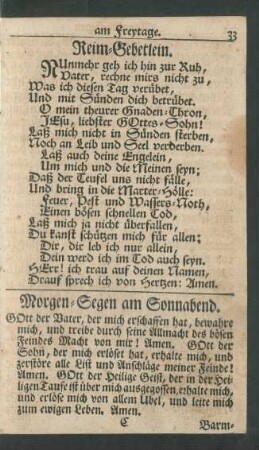 am Freytage. 33
Reim-Gebetlein.
NUnmehr geh ich hin zur Ruh,
Vater, rechne mirs nicht zu,
Was ich diesen Tag verübet,
Und mit Sünden dich betrübet.
O mein theurer Gnaden-Thron,
JEsu, liebster GOttes-Sohn!
Laß mich nicht in Sünden sterben,
Noch an Leib und Seel verderben.
Laß auch deine Engelein,
Um mich und die Meinen seyn;
Daß der Teufel uns nicht fälle,
Und bring in die Marter-Hölle:
Feuer, Pest und Wassers-Noth,
Einen bösen schnellen Tod,
Laß mich ja nicht überfallen,
Du kanst schützen mich für allen;
Dir, dir leb ich nur allein,
Dein werd ich im Tod auch seyn.
HErr! ich trau auf deinen Namen,
Drauf sprech ich von Hertzen: Amen.
Morgen-Segen am Sonnabend.
GOtt der Vater, der mich erschaffen hat, bewahre
mich, und treibe durch seine Allmacht des bösen
Feindes Macht von mir! Amen. GOtt der
Sohn, der mich erlöset hat, erhalte mich, und
zerstöre alle List und Anschläge meiner Feinde!
Amen. GOtt der Heilige Geist, der in der Hei-
ligen Taufe ist über mich ausgegossen, erhalte mich,
und erlöse mich von allem Übel, und leite mich
zum ewigen Leben. Amen.
C Barm-